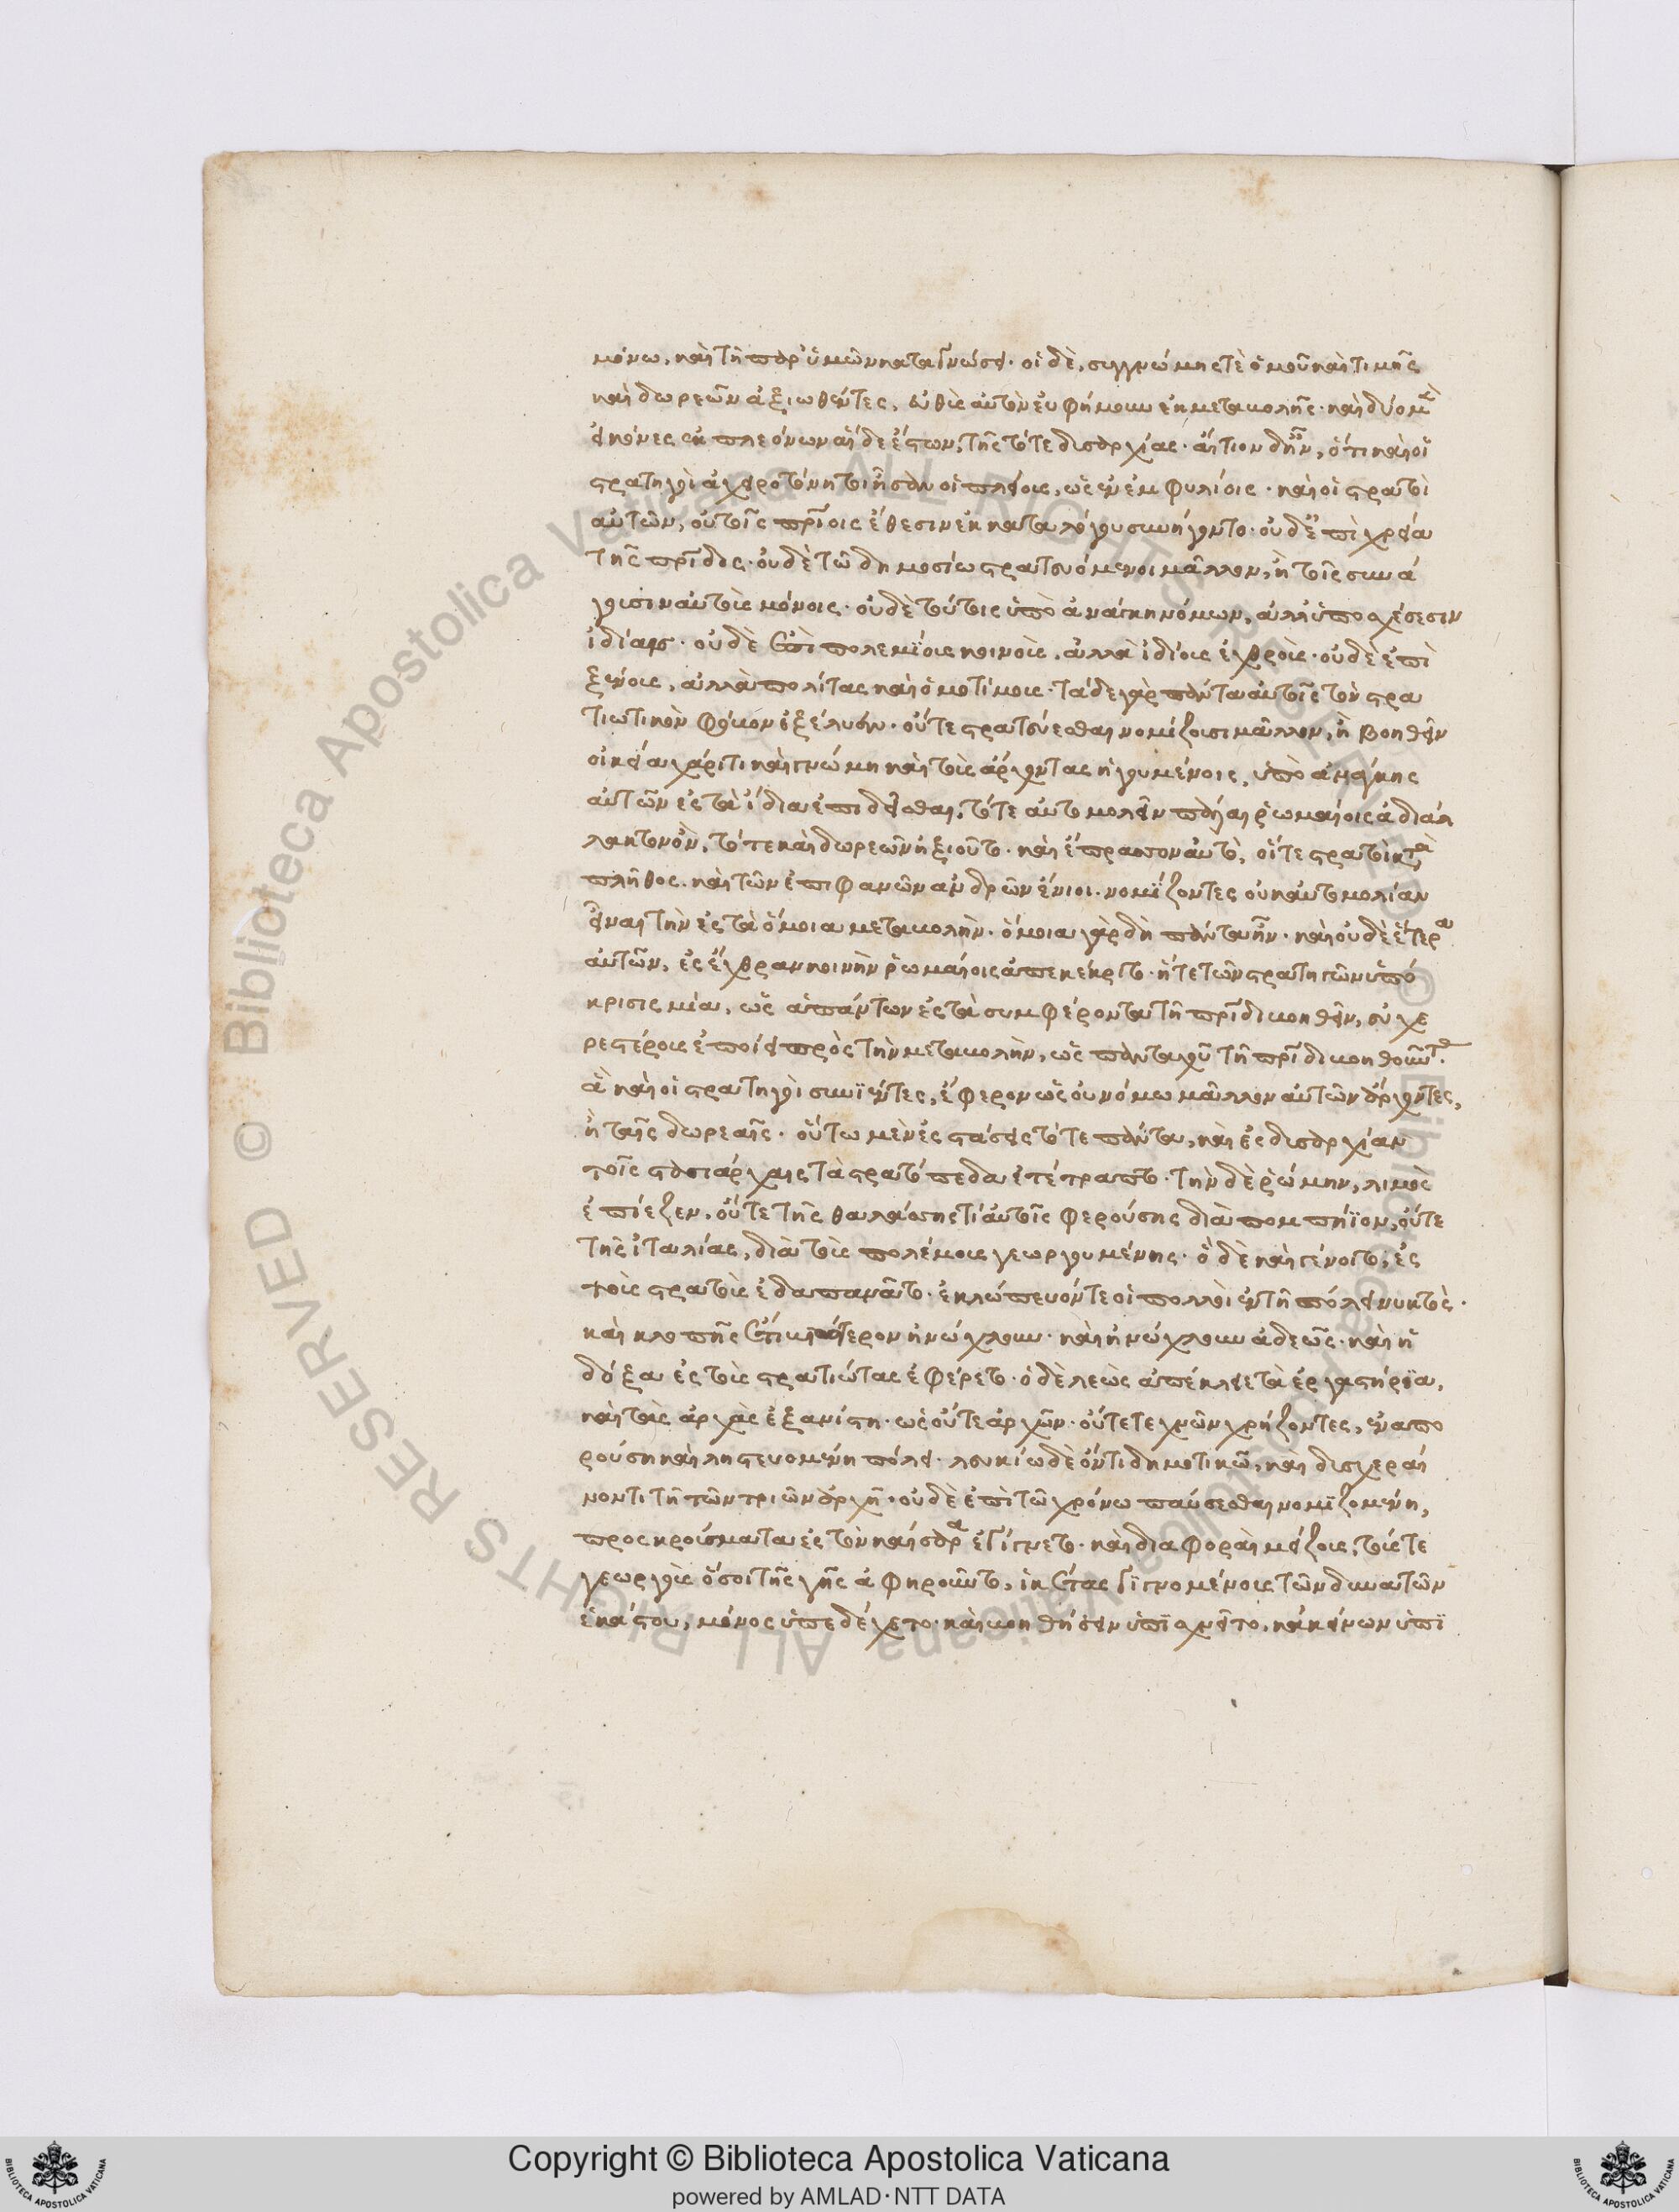 μόνω, καὶ τῆ παρ' ὑμῶν καταγνώσει. οἱ δὲ, συγγνώμης τὲ ὁμοῦ καὶ τιμῆς
καὶ δωρεῶν ἀξιωθέντες, εὐθὺς αὐτὸν εὐφήμουν ἐκ μεταβολῆς. καὶ δύο μὲν
εἰκόνες ἐκ πλεόνων αἵδε ἔστων, τῆς τότε δυσαρχίας. αἴτιον δ' ἦν, ὅτι καὶ οἱ
στρατηγοὶ ἀχειροτόνητοι ἦσαν οἱ πλείους, ὡς ἐν ἐμφυλίοις. καὶ οἱ στρατοὶ
αὐτῶν, οὐ τοῖς πρίοις ἔθεσιν ἐκ καταλόγου συνήγοντο. οὐδ' ἐπὶ χρεία
τῆς πρίδος. οὐδὲ τῶ δημοσίω στρατευόμενοι μᾶλλον, ἢ τοῖς συνά
γουσιν αὐτοὺς μόνοις. οὐδὲ τούτοις ὑπὸ ἀνάγκη νόμων, ἀλλ' ὑποσχέσεσιν
ἰδίαις. οὐδὲ ἐπὶ πολεμίους κοινοὺς, ἀλλὰ ἰδίους ἐχθροὺς. οὐδὲ ἐπὶ
ξένους, ἀλλὰ πολίτας καὶ ὁμοτίμους. τάδε γὰρ πάντα αὐτοῖς τὸν στρα
τιωτικὸν φόβον ἐξέλυεν. οὔτε στρατεύεσθαι νομίζουσι μᾶλλον, ἢ βοηθεῖν
οἰκεία χάριτι καὶ γνώμη καὶ τοὺς ἄρχοντας ἡγουμένοις, ὑπὸ ἀνάγκης
αὐτῶν ἐς τὰ ἴδια ἐπιδεῖσθαι. τότε αὐτομολεῖν πάλαι ῥωμαίοις ἀδιάλ
λακτον ὂν, τότε καὶ δωρεῶν ἠξιοῦτο. καὶ ἔπρασσον αὐτὸ, οἵ τε στρατοὶ κατὰ
πλῆθος. καὶ τῶν ἐπιφανῶν ἀνδρῶν ἔνιοι. νομίζοντες οὐκ αὐτομολίαν
εἶναι τὴν ἐς τὰ ὅμοια μεταβολὴν. ὅμοια γὰρ δὴ πάντα ἦν. καὶ οὐδὲ ἕτερα
αὐτῶν, ἐς ἔχθραν κοινὴν ῥωμαίοις ἀπεκέκριτο. ἥ τε τῶν στρατηγῶν ὑπό
κρισις μία, ὡς ἁπάντων ἐς τὰ συμφέροντα τῆ πρίδι βοηθεῖν, εὐχε
ρεστέρους ἐποίει πρὸς τὴν μεταβολὴν, ὡς πανταχοῦ τῆ πρίδι βοηθοῦντας.
ἃ καὶ οἱ στρατηγοὶ συνιέντες, ἔφερον ὡς οὐ νόμω μᾶλλον αὐτῶν ἄρχοντες,
ἢ ταῖς δωρεαῖς. οὕτω μὲν ἐς στάσεις τότε πάντα, καὶ ἐς δυσαρχίαν
τοῖς στασιάρχαις τὰ στρατόπεδα ἐτέτραπτο. τὴν δὲ ῥώμην, λιμὸς
ἐπίεζεν. οὔτε τῆς θαλάσσης τὶ αὐτοῖς φερούσης διὰ πομπήϊον, οὔτε
τῆς ἰταλίας, διὰ τοὺς πολέμους γεωργουμένης. ὃ δὲ καὶ γένοιτο, ἐς
τοὺς στρατοὺς ἐδαπανᾶτο. ἐκλώπευόν τε οἱ πολλοὶ ἐν τῆ πόλει νυκτὸς.
καὶ κλοπῆς ἔτι βιαιότερον ἠνώχλουν. καὶ ἠνώχλουν ἀδεῶς. καὶ ἡ
δόξα ἐς τοὺς στρατιώτας ἐφέρετο. ὁ δὲ λεὼς ἀπέκλειε τὰ ἐργαστήρια,
καὶ τὰς ἀρχὰς ἐξανίστη. ὡς οὔτε ἀρχῶν. οὔτε τεχνῶν χρήζοντες, ἐν ἀπο
ρούση καὶ ληστευομένη πόλει. λευκίω δὲ ὄντι δημοτικῶ, καὶ δυσχεραί
νοντι τῆ τῶν τριῶν ἀρχῆ. οὐδὲ ἐπὶ τῶ χρόνω παύσεσθαι νομιζομένη,
προσκρούσματα ἐς τὸν καίσαρα ἐγίγνετο. καὶ διαφοραὶ μείζους, τούς τε
γεωργοὺς ὅσοι τῆς γῆς ἀφηροῦντο, ἱκέτας γιγνομένους τῶν δυνατῶν
ἑκάστου, μόνος ὑπεδέχετο. καὶ βοηθήσειν ὑπισχνεῖτο, κἀκείνων ὑπι